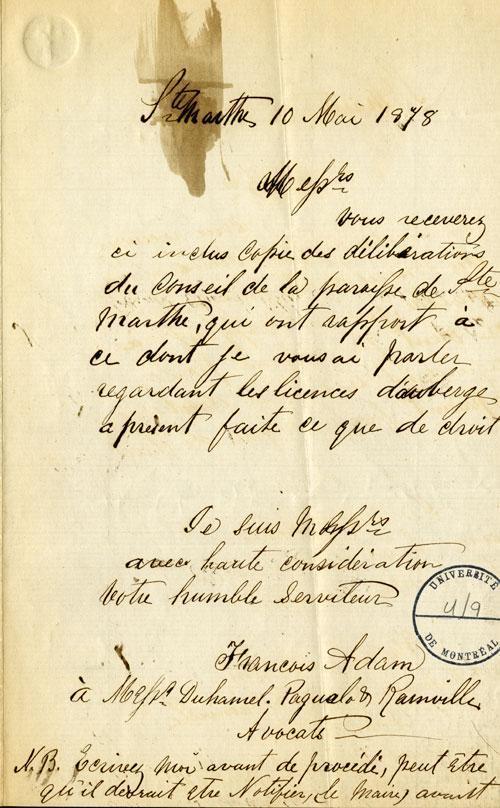 Ste Marthe, 10 Mai 1878
Messrs
vous receverez
ci inclus copie des délibérations
du Conseil de la paroisse de Ste
Marthe, qui ont rapport à
ce dont je vous ai parler
regardant les licences d'auberge
a present faite ce que de droit
Je suis Messrs
avec haute considération
Votre humble Serviteur
UNIVERSITÉ
U/9
DE MONTRÉAL
Francois Adam
à Messrs Duhamel. Pagnuelo & Rainville
Avocats
N.B. Ecrivez moi avant de procédé, peut être
qu'il devrait être Notifier, le Maire, avant